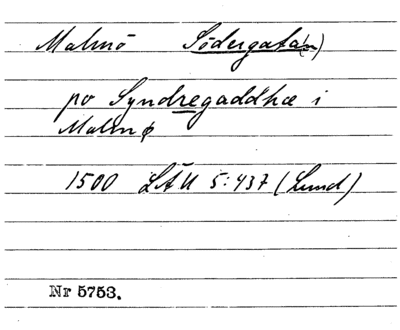 Malmö Södergata(n)
po Syndregaddhæ i
Malmø
1500 LÄU 5:437 (Lund)
Nr 5753.